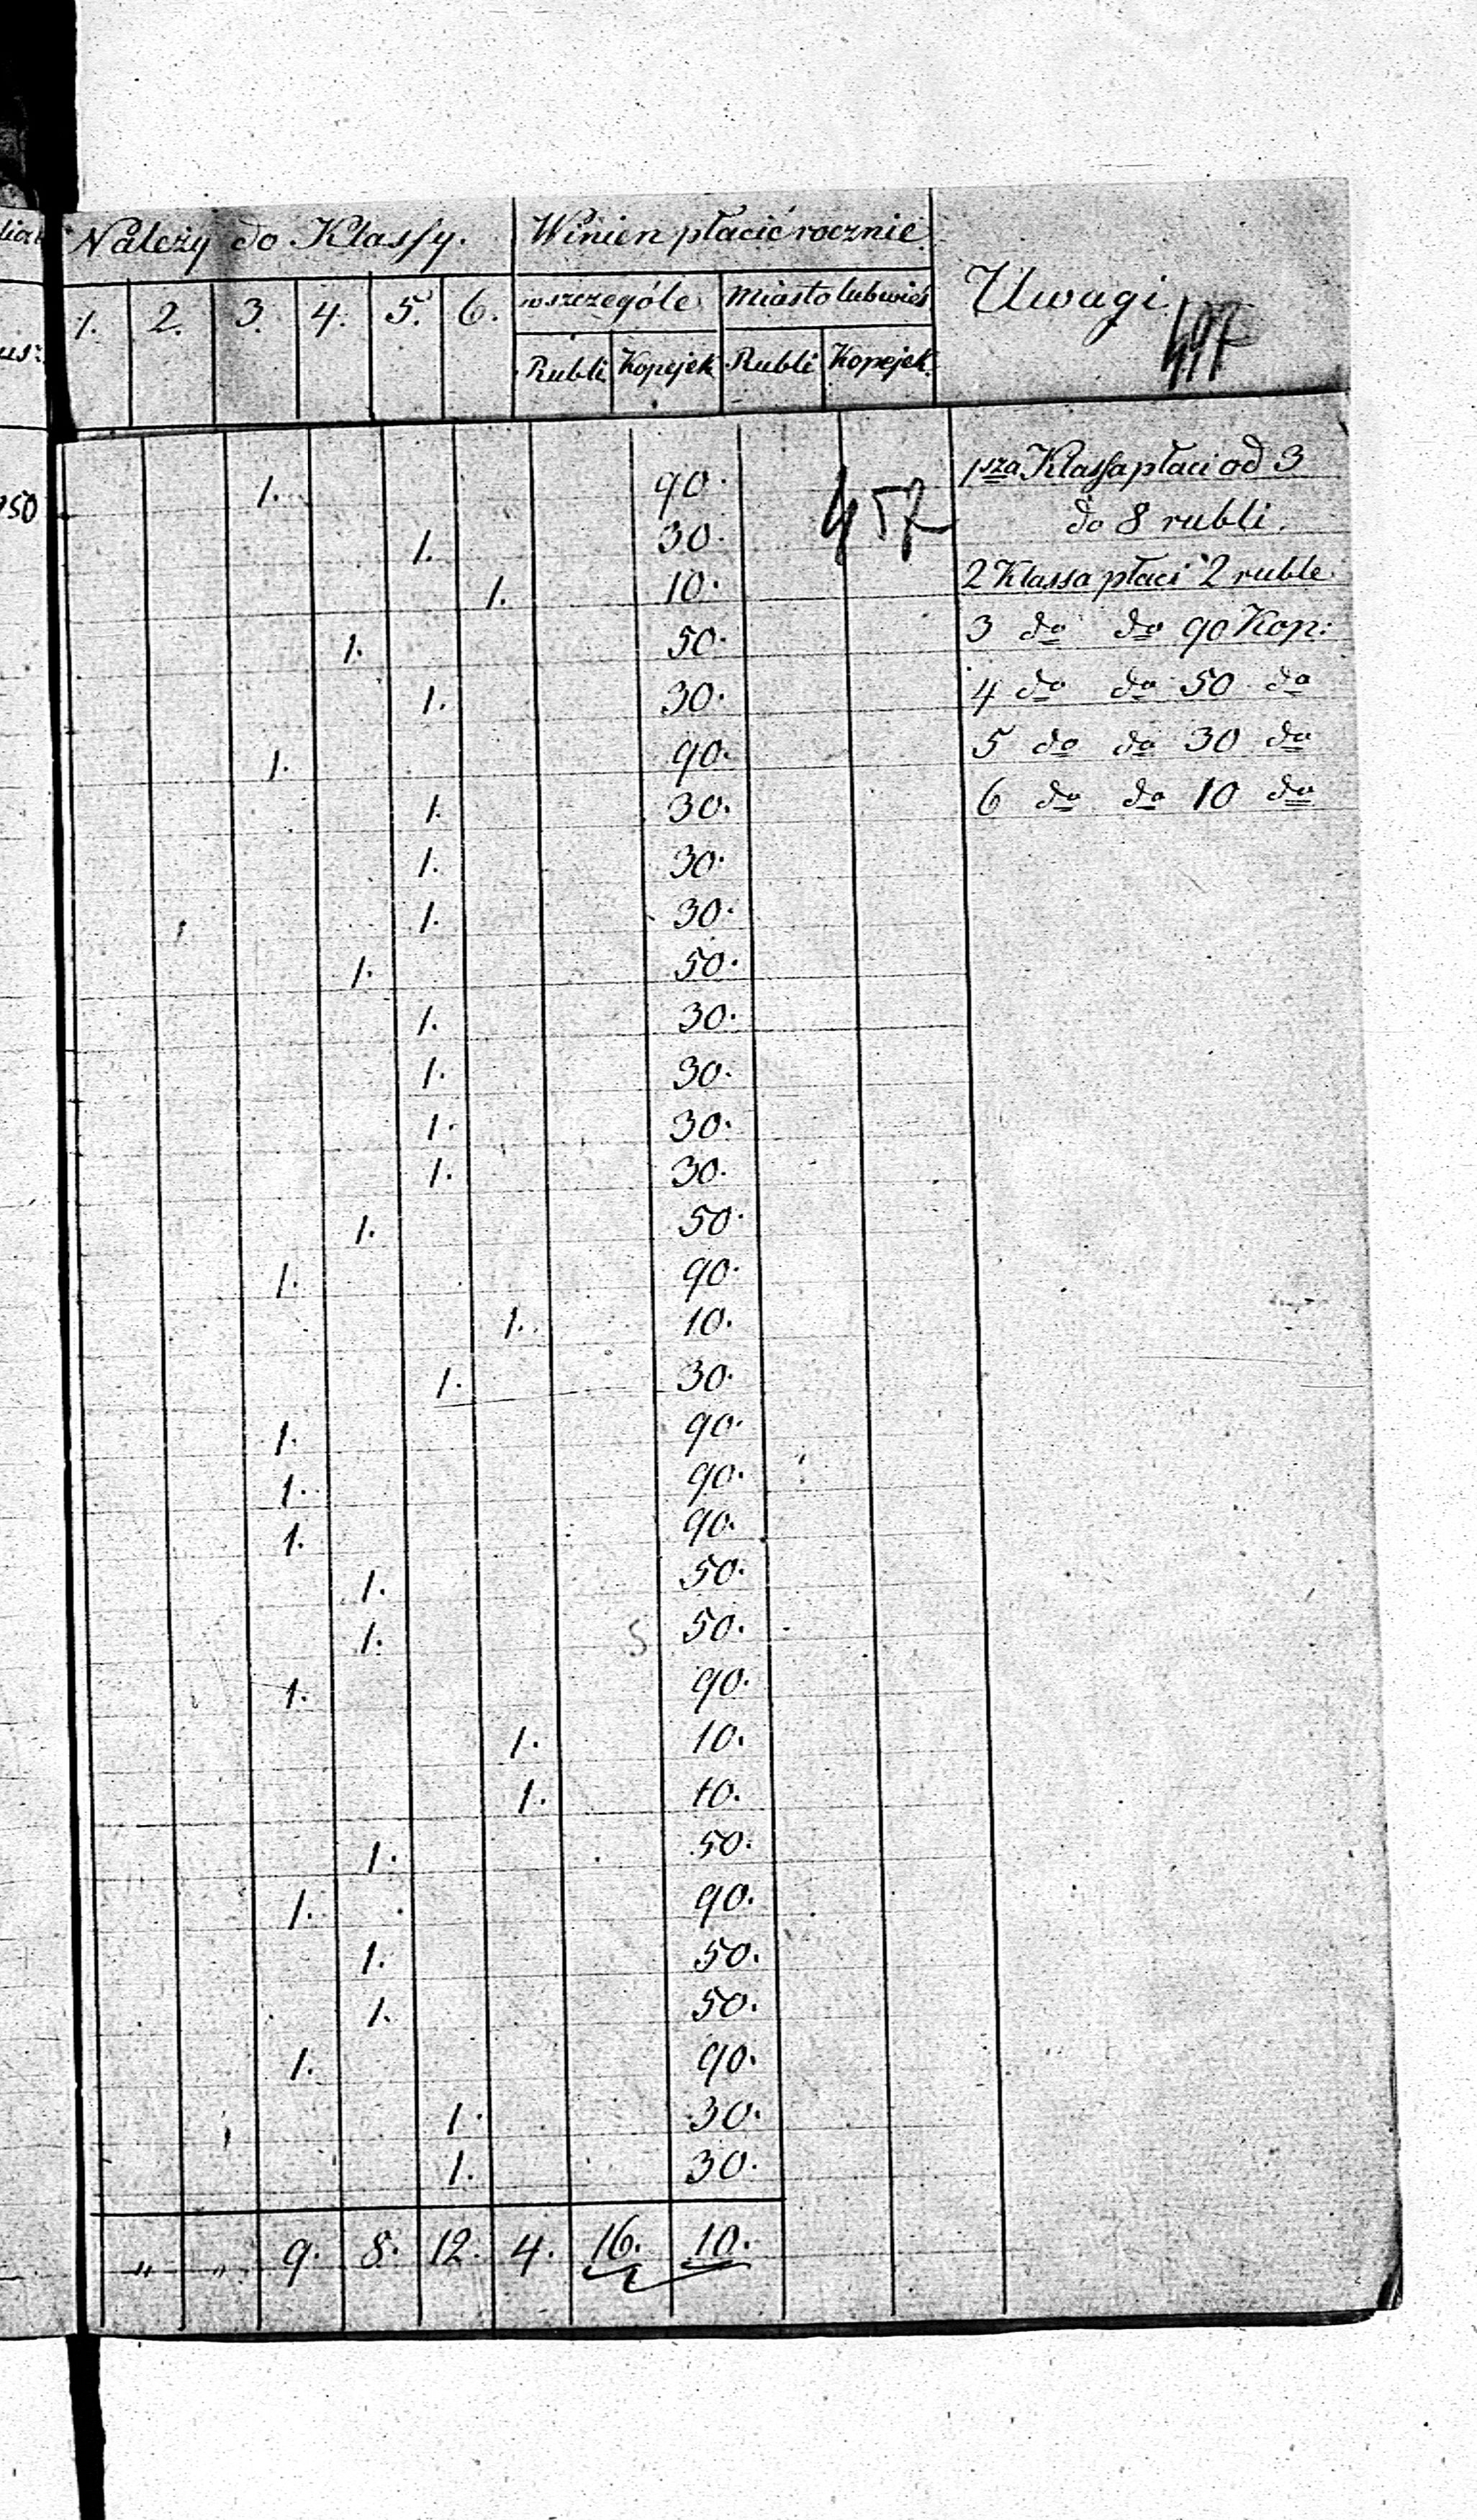 Należy do Klassy. Winien płacić rocznie Uwagi
1. 2. 3. 4. 5. 6. wszczególe Miasto lub wieś
Rubli Kopejek Rubli Kopejek
1. 90. 457 1sza Klassa płaci od 3
150
1. 30. do 8 rubli.
1. 10. 2 Klassa płaci 2 ruble
1. 50. 3 do do 90 Kop:
1. 30. 4 do do 50 do
1. 90. 5 do do 30 do
1. 30. 6 do do 10 do
1. 30.
1. 30.
1. 50.
1. 30.
1. 30.
1. 30.
1. 30.
1. 50.
1. 90.
1. 10.
1. 30.
1. 90.
1. 90.
1. 90.
1. 50.
1. 5 50.
1. 90.
1. 10.
1. 10.
1. 50.
1. 90.
1. 50.
1. 50.
1. 90.
1. 30.
1. 30.
" " 9. 8. 12. 4. 16. 10.